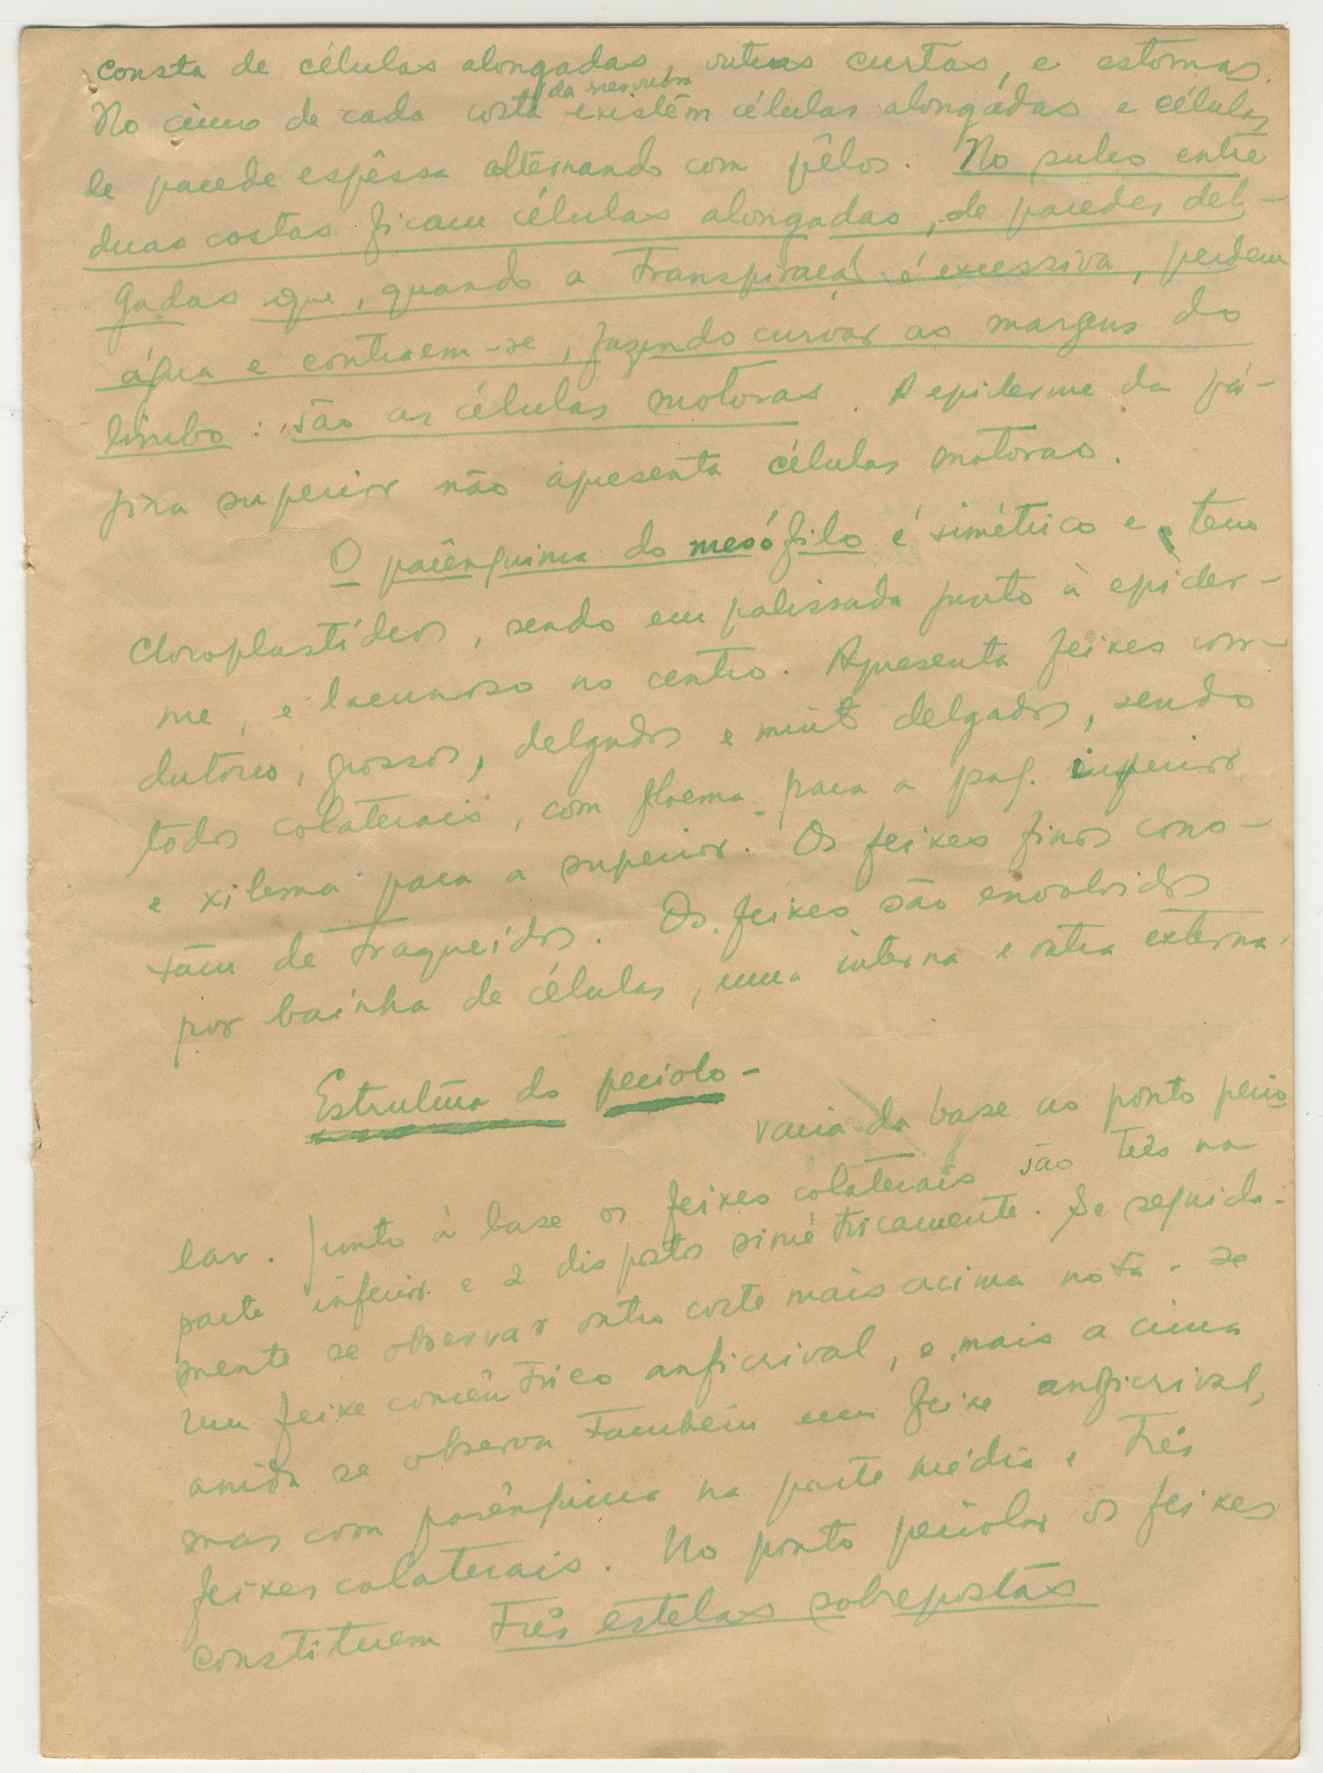 consta de células alongadas, outras curtas, e estomas.
No cimo de cada costa da nervura existem células alongadas e células
de parede espêssa alternando com pêlos. No sulco entre
duas costas ficam células alongadas, de paredes del-
gadas que, quando a transpiração é excessiva, perdem
água e contraem-se, fazendo curvar as margens do
limbo: são as células motoras. A epiderme da pá-
gina superior não apresenta células motoras.
O parênquima do mesófilo é simétrico e tem
cloroplastídeos, sendo em palissada junto à epider-
me, e lacunoso no centro. Apresenta feixes con-
dutores, grossos, delgados e muito delgados, sendo
todos colaterais, com floema para a pag. inferior
e xilema para a superior. Os feixes finos cons-
tam de traqueídos. Os feixes são envolvidos
por bainha de células, uma interna e outra externa.
Estrutura do pecíolo -
varia da base ao ponto pecio
lar. Junto à base os feixes colaterais são três na
parte inferior e 2 dispostos simétricamente. Se seguida-
mente se observar outro corte mais acima nota-se
um feixe concêntrico anficrival, e mais acima
ainda se observa também um feixe anficrival,
mas com parênquima na parte média e três
feixes colaterais. No ponto peciolar os feixes
constituem três estelas sobrepostas